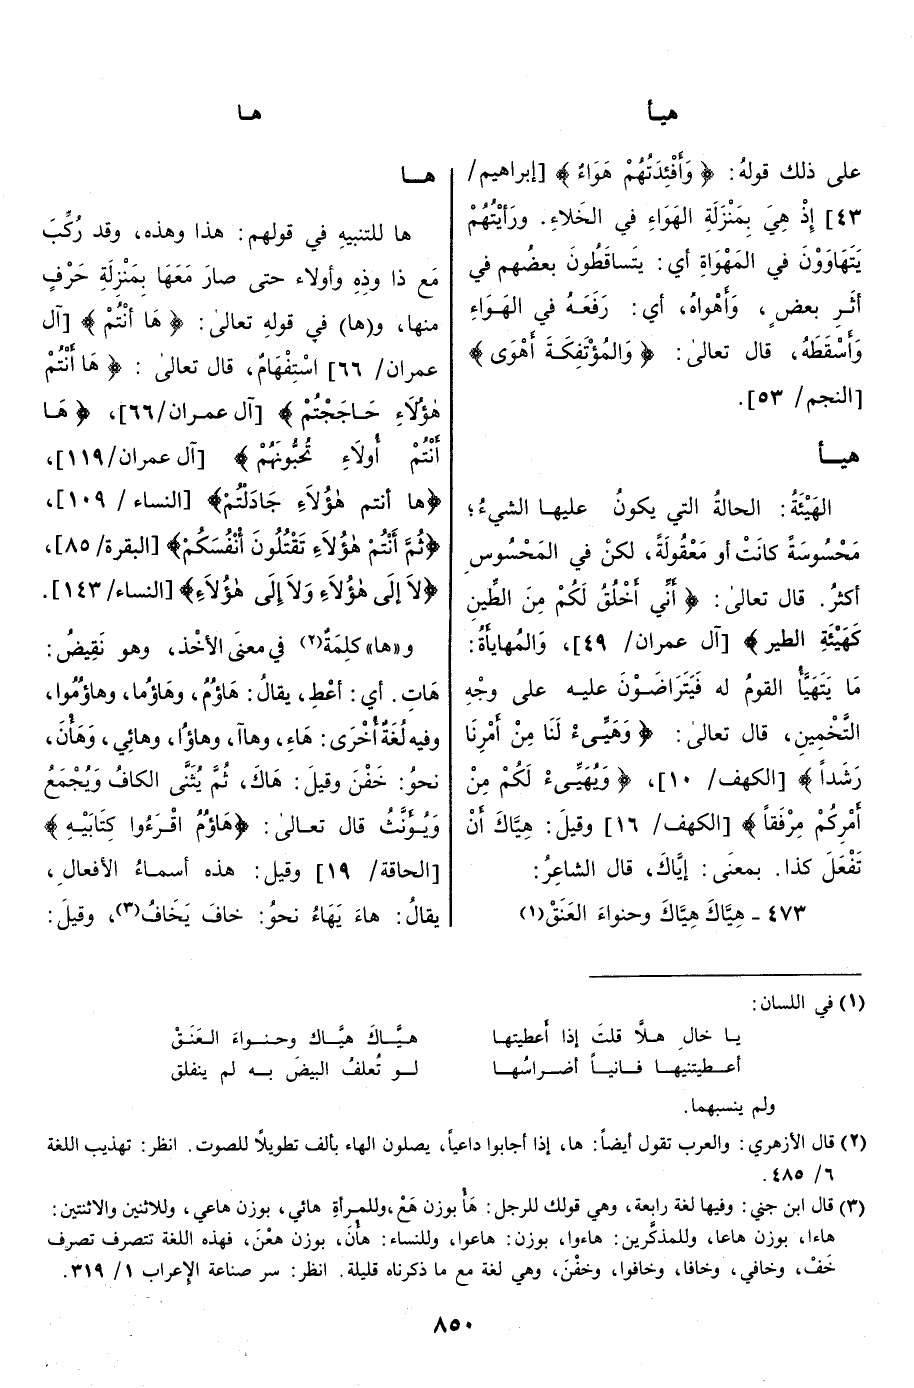 هيأ
هـا
على ذلك قولهُ: ﴿ وَأَفْئِدَتُهُمْ هَوَاءٌ ﴾ [إبراهيم/
٤٣] إذْ هِيَ بِمَنْزِلَةِ الهَوَاءِ في الخَلاءِ. ورَأَيْتُهُمْ
يَتَهَاوَوْنَ في المَهْوَاةِ أي: يَتساقَطُونَ بعضُهم في
أثَرِ بعضٍ، وَأَهْواهُ، أي: رَفَعَهُ في الهَواءِ
وَأَسْقَطَهُ، قال تعالىٰ: ﴿ وَالمُؤْتَفِكَةَ أَهْوَى ﴾
[النجم/ ٥٣].
هيـأ
الهَيْئَةُ: الحالةُ التي يكونُ عليها الشيءُ؛
مَحْسُوسَةً كانَتْ أو مَعْقُولَةً، لكنْ في المَحْسُوسِ
أكثرُ. قال تعالىٰ: ﴿ أَنِّي أَخْلُقُ لَكُمْ مِنَ الطِّينِ
كَهَيْئَةِ الطيرِ ﴾ [آل عمران/ ٤٩]، وَالمُهايأَةُ:
مَا يَتَهَيَّأُ القومُ له فَيَتَرَاضَوْنَ عليه على وجْهِ
التَّخْمِينِ، قال تعالىٰ: ﴿ وَهَيِّىءْ لَنَا مِنْ أَمْرِنَا
رَشَداً ﴾ [الكهف/ ١٠]، ﴿ وَيُهَيِّىءْ لَكُمْ مِنْ
أَمْرِكُمْ مِرْفَقاً ﴾ [الكهف/ ١٦] وقيلَ: هِيَّاكَ أَنْ
تَفْعَلَ كذا. بمعنَى: إيَّاكَ، قال الشاعِرُ:
٤٧٣ - هِيَّاكَ هِيَّاكَ وحنواءَ العَنَقْ(١)
هـا
ها للتنبيهِ في قولهم: هذا وهذه، وقد رُكِّبَ
مَع ذا وذِهِ وأولاء حتى صارَ مَعَهَا بِمَنْزِلَةِ حَرْفٍ
منها، و(ها) في قولهِ تعالىٰ: ﴿ هَا أَنْتُمْ ﴾ [آل
عمران/ ٦٦] اسْتِفْهَامٌ، قال تعالىٰ : ﴿ هَا أَنْتُمْ
هٰؤُلَاءِ حَاجَجْتُمْ ﴾ [آل عمران/٦٦]، ﴿ هَا
أَنْتُمْ أُولَاءِ تُحِبُّونَهُمْ ﴾ [آل عمران/١١٩]،
﴿ها أنتم هٰؤُلَاءِ جَادَلْتُمْ﴾ [النساء / ١٠٩]،
﴿ثُمَّ أَنْتُمْ هٰؤُلَاءِ تَقْتُلُونَ أَنْفُسَكُمْ﴾ [البقرة/٨٥]،
﴿لَا إلَى هٰؤُلَاءِ وَلَا إِلَى هٰؤُلَاءِ﴾ [النساء/١٤٣].
و «ها» كلِمَةٌ(٢) في معنَى الأخْذِ، وهو نَقِيضُ:
هَاتِ. أي: أعْطِ، يقالُ: هَاؤُمُ، وهَاؤُما، وهاؤُمُوا،
وفيه لُغَةٌ أُخْرَى: هَاءِ، وهاآ، وهاؤُا، وهائِي، وَهَأْنَ،
نحوُ: خَفْنَ وقيلَ: هَاكَ، ثُمَّ يُثَنَّى الكافُ وَيُجْمَعُ
وَيُؤَنَّثُ قال تعالىٰ: ﴿هَاؤُمُ اقْرَءُوا كِتَابِيَهْ ﴾
[الحاقة/ ١٩] وقيل: هذه أسماءُ الأفعالِ،
يقالُ: هاءَ يَهَاءُ نحوُ: خافَ يَخَافُ(٣)، وقيلَ:
(١) في اللسان:
يا خالِ هلَّا قلتَ إذا أعطيتها هيَّاكَ هيَّاك وحنواءَ العَنَقْ
أعطيتنيها فانياً أضراسُها لو تُعلفُ البيضَ به لم ينفلق
ولم ينسبهما.
(٢) قال الأزهري: والعرب تقول أيضاً: ها، إذا أجابوا داعياً، يصلون الهاء بألف تطويلًا للصوت. انظر: تهذيب اللغة
٦/ ٤٨٥.
(٣) قال ابن جني: وفيها لغة رابعة، وهي قولك للرجل: هَأْ بوزن هَعْ،وللمرأةِ هائي، بوزن هاعي، وللاثنين والاثنتين:
هاءا، بوزن هاعا، وللمذكَّرين: هاءوا، بوزن: هاعوا، وللنساء: هأْنَ، بوزن هعْنَ، فهذه اللغة تتصرف تصرف
خَفْ، وخافي، وخافا، وخافوا، وخفْنَ، وهي لغة مع ما ذكرناه قليلة. انظر: سر صناعة الإعراب ١/ ٣١٩.
٨٥٠